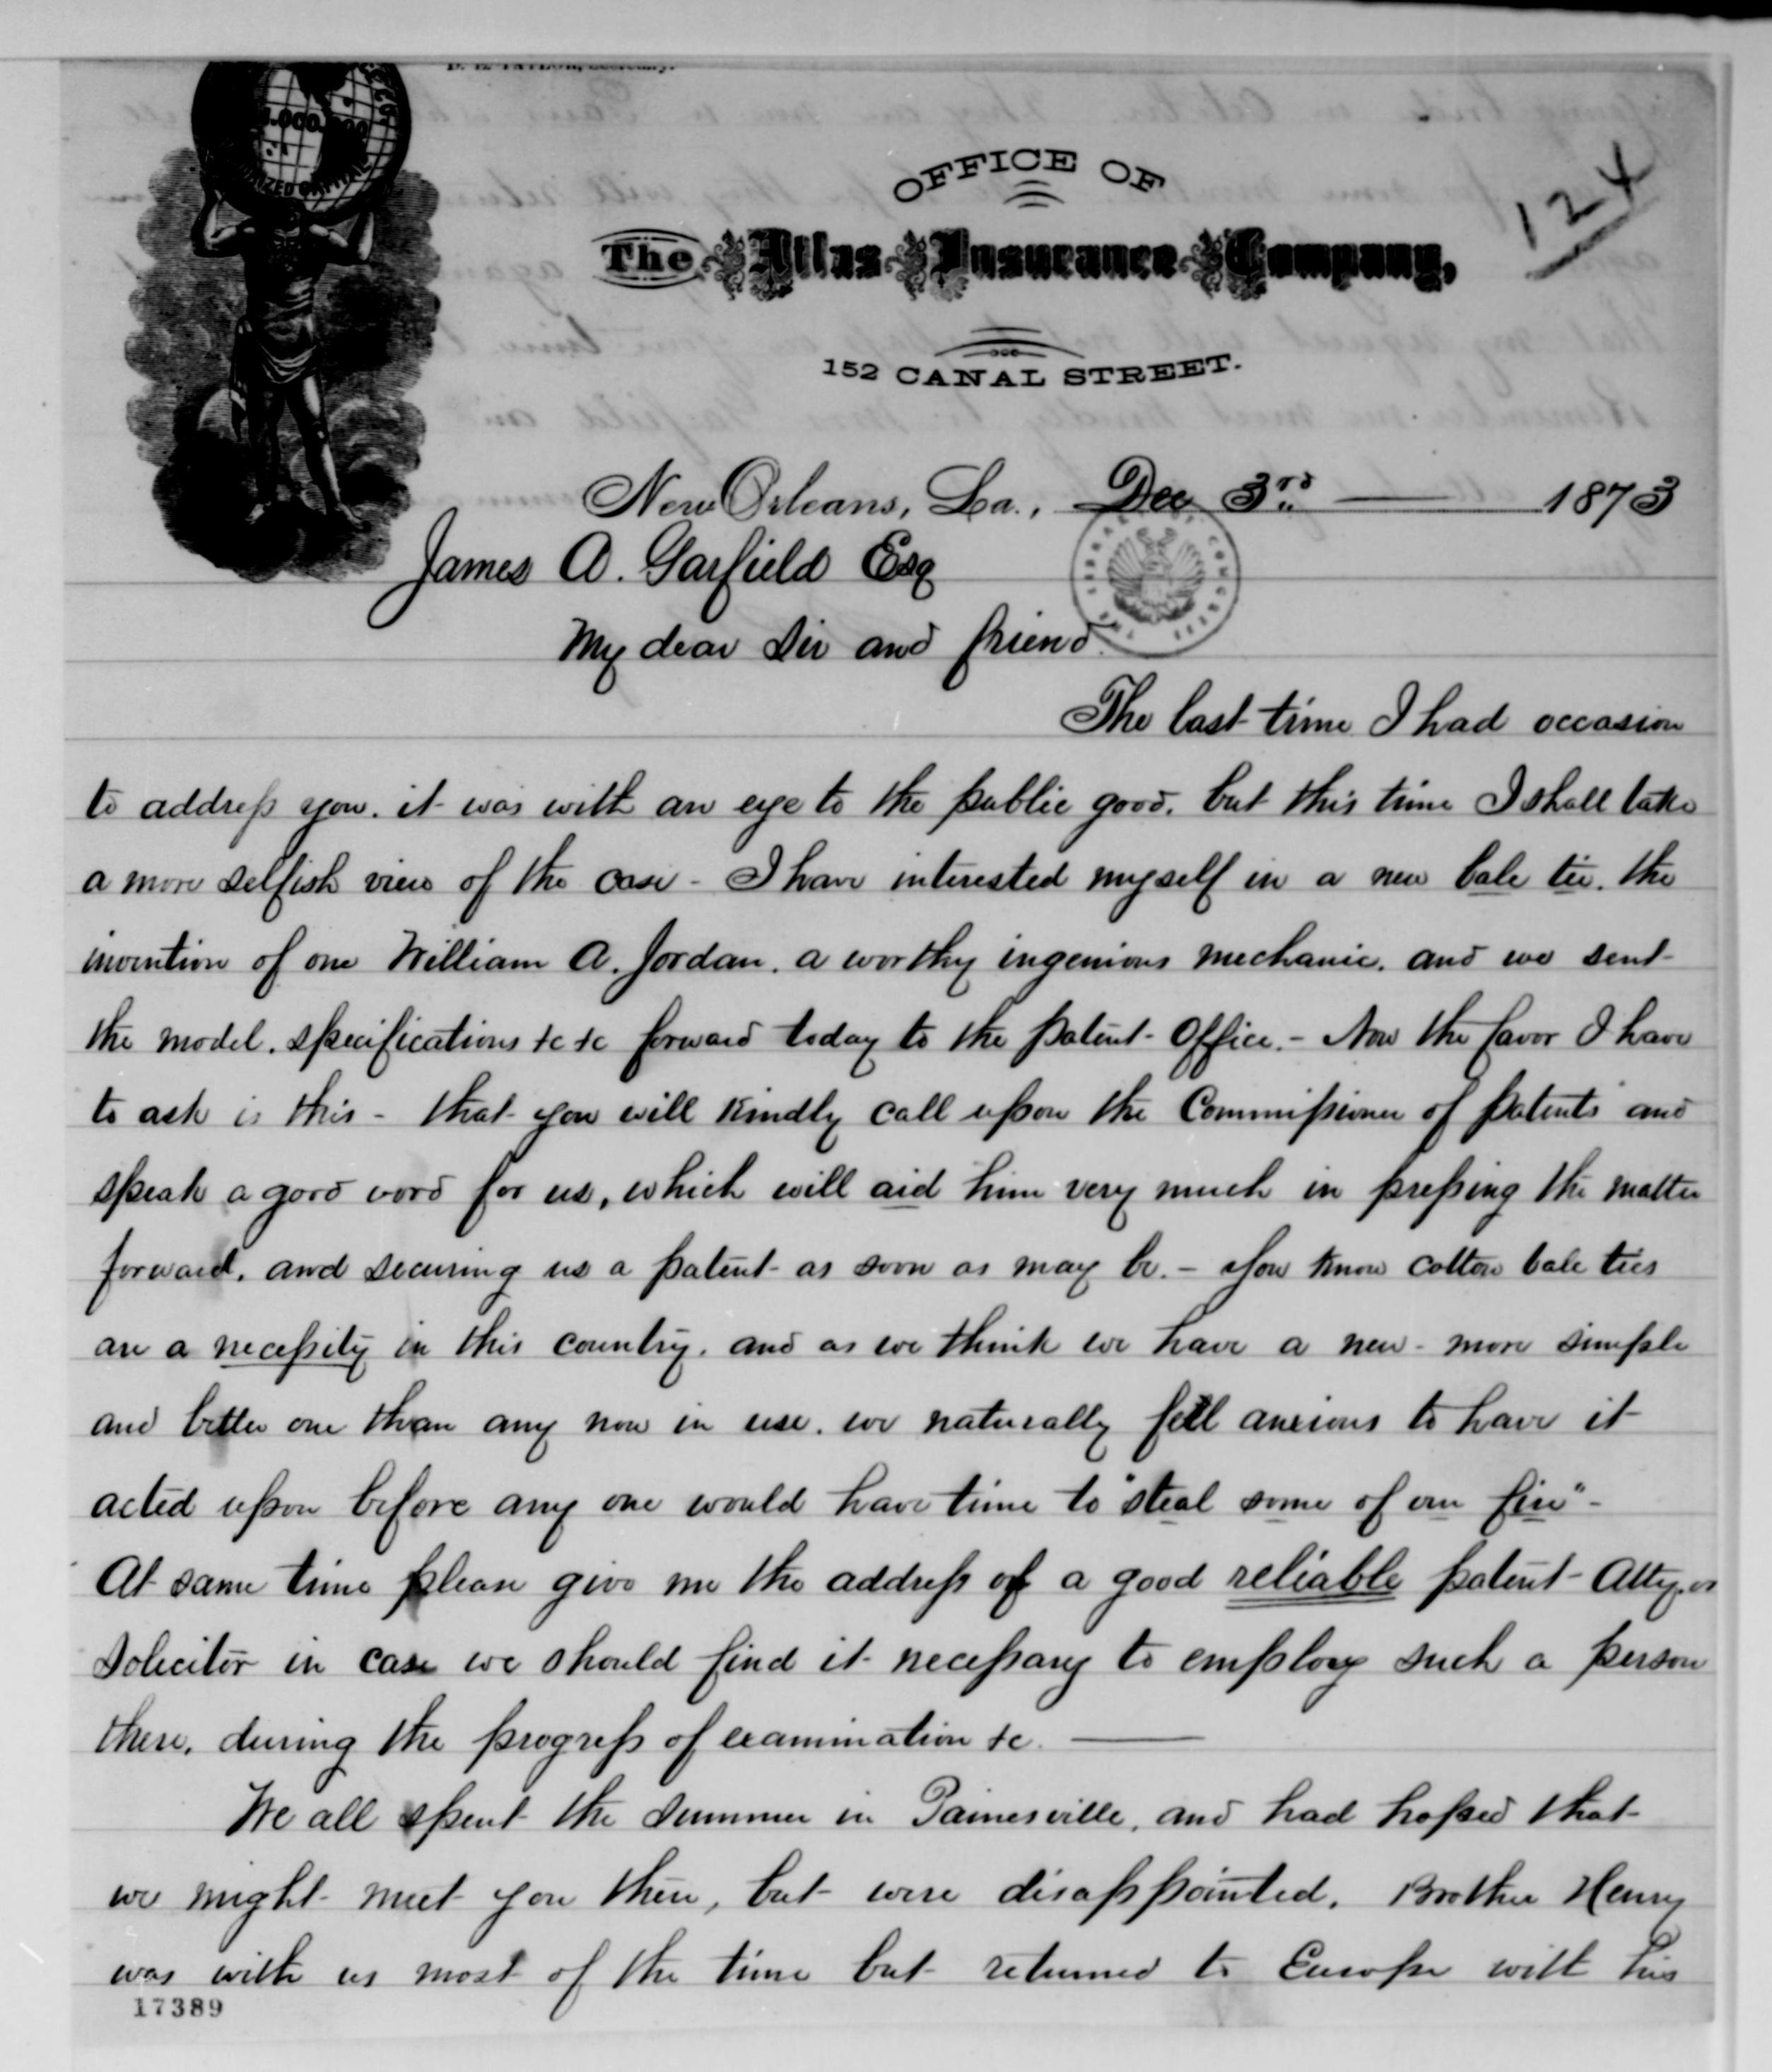 D. E. TAYLOR, Secretary.
1.000.000
CAPITAL
124
OFFICE OF
The Atlas Insurance Company,
152 CANAL STREET.
New Orleans, La., Dec 3rd 1873
James A. Garfield Esq
My dear Sir and friend.
The last time I had occasion
to address you. it was with an eye to the public good. but this time I shall take
a more selfish view of the case - I have interested myself in a new bale tie. the
invention of one William A. Jordan. a worthy ingenious mechanic. and we sent
the model. specifications &c &c forward today to the patent Office. - Now the favor I have
to ask is this - that you will kindly call upon the Commissioner of patents and
speak a good word for us, which will aid him very much in pressing the matter
forward. and securing us a patent as soon as may be. - You know cotton bale ties
are a necessity in this country. and as we think we have a new - more simple
and better one than any now in use. we naturally feel anxious to have it
acted upon before any one would have time to "steal some of our fire" -
At same time please give me the address of a good reliable patent Atty. or
Solicitor in case we should find it necessary to employ such a person
there. during the progress of examination &c.
We all spent the summer in Painesville, and had hoped that
we might meet you there, but were disappointed. Brother Henry
was with us most of the time but returned to Europe with his
17389